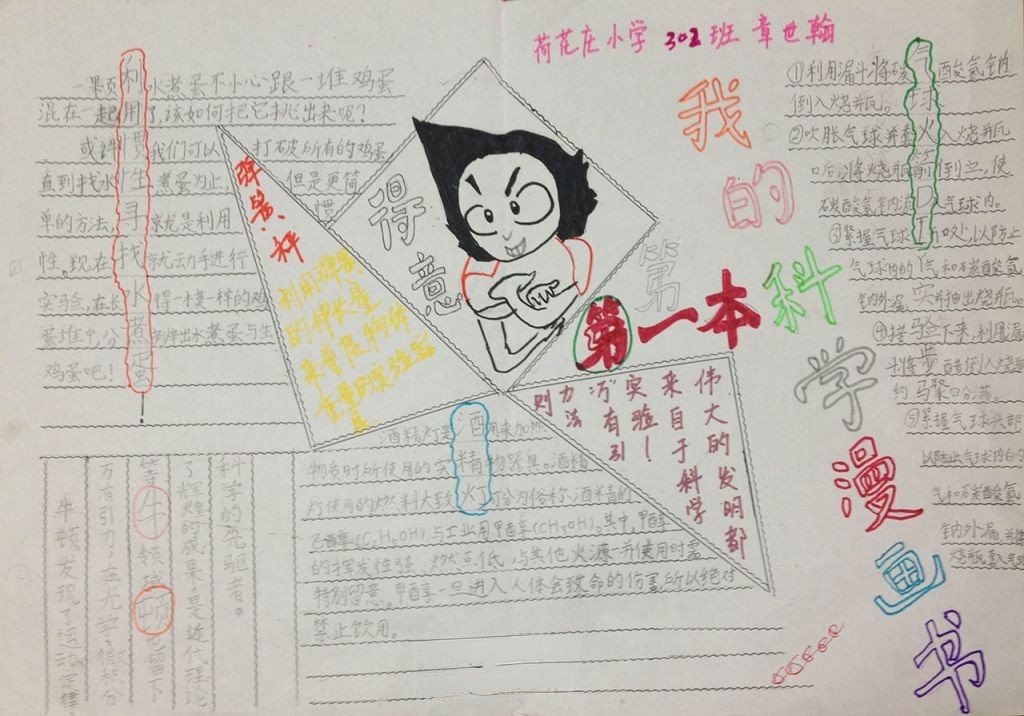 荷花庄小学 302班 章世翰
我的第一本科学漫画书
利用惯性寻找水煮蛋
一颗水煮蛋不小心跟一堆鸡蛋
混在一起了,该如何把它挑出来呢?
或许我们可以打破所有的鸡蛋
直到找水煮蛋为止,但是更简
单的方法,就是利用惯
性。现在就动手进行
实验,在长得一模一样的鸡
蛋堆中,分辨出水煮蛋与生
鸡蛋吧!
弹簧秤
利用弹簧
的伸长量
来测量物体
重量的实验器
得意
第
伟大的发明都
来自于科学
实验!
万有引
力法
则
酒精灯
酒精灯是用来加热
物质时所使用的实验器具。酒精
灯使用的燃料大致可分为俗称酒精的
乙醇(C₂H₅OH)与工业用甲醇(CH₃OH)。其中,甲醇
的挥发性强、燃点低,与其他火源并使用时需
特别留意。甲醇一旦进入人体会致命的伤害,所以绝对
禁止饮用。
气球火箭
①利用漏斗将碳酸氢钠
倒入烧瓶。
②吹胀气球并套入烧瓶
口后,将烧瓶倒立,使
碳酸氢钠进入气球内。
③紧握气球吹口,以防止
气球内的气和碳酸氢
钠外漏,并抽出烧瓶。
实验步骤
④接下来,利用漏
斗将醋倒入烧瓶
约
⑤紧握气球头部
以防止气球内的
气和碳酸氢
钠外漏,并将
烧瓶套入气球
牛顿
牛顿发现了运动定律、
万有引力,在光学、微积分
等领域也留下
了辉煌的成果,是近代理论
科学的先驱者。